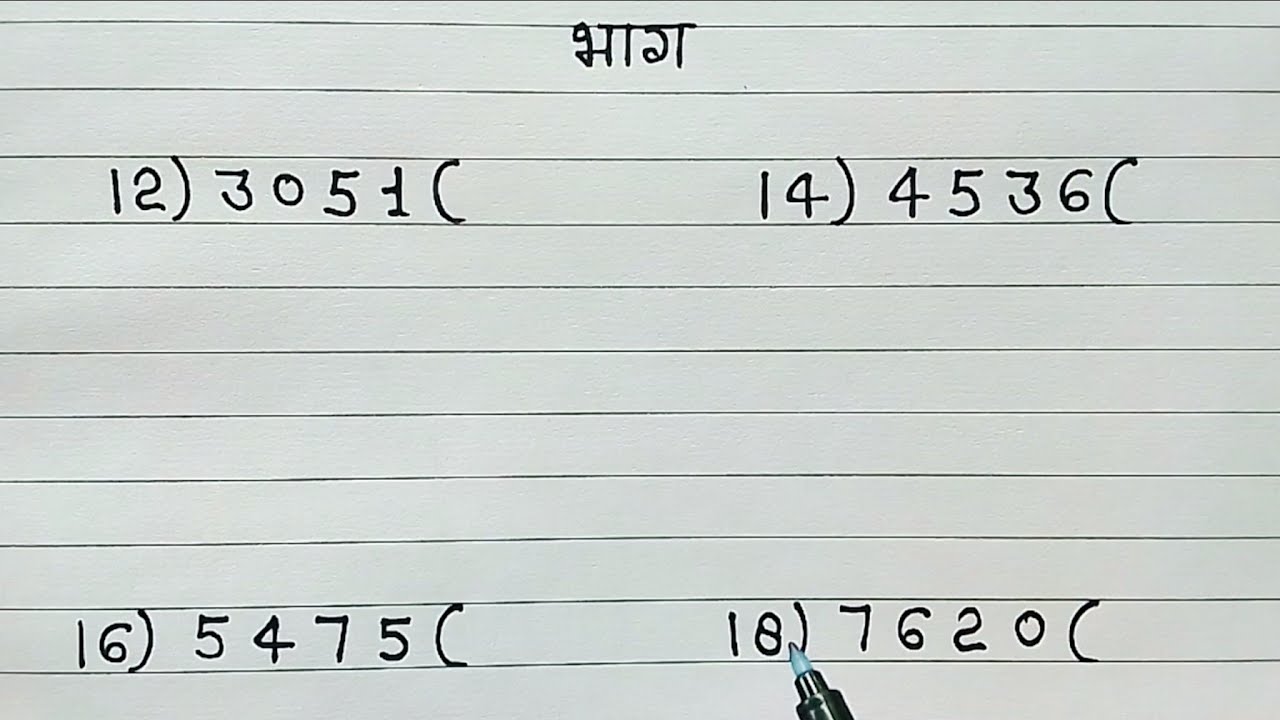 भाग
12) 3051( 14) 4536(
16) 5475( 18) 7620(